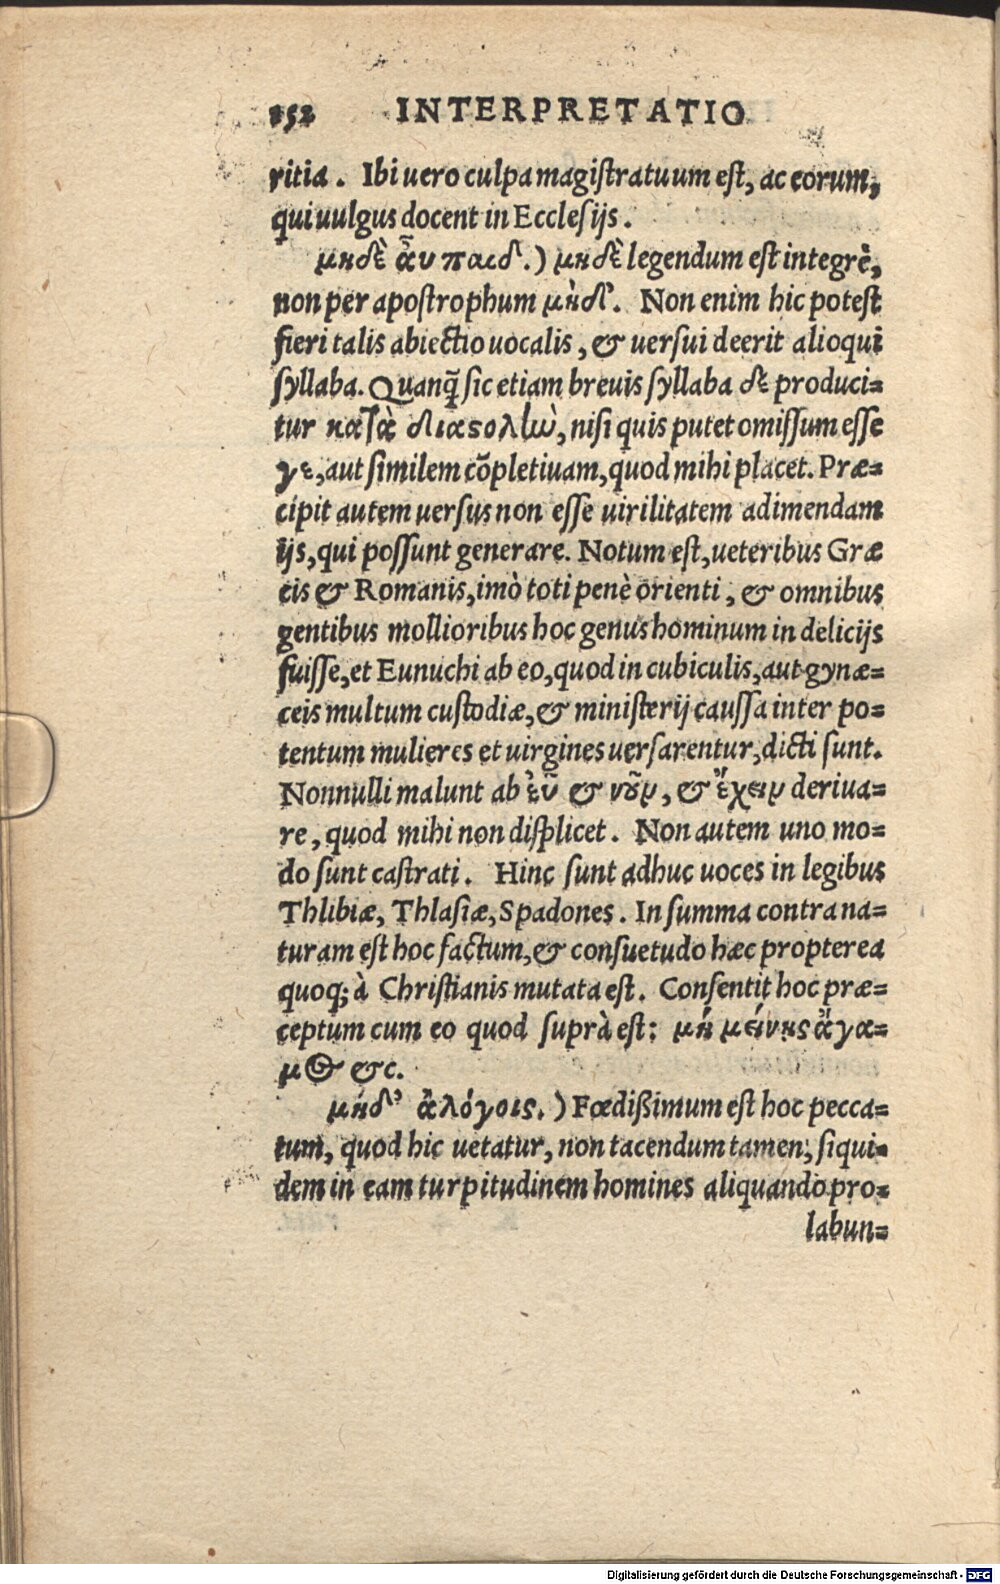 152 INTERPRETATIO
ritia. Ibi uero culpa magistratuum est, ac eorum,
qui uulgus docent in Ecclesijs.
μηδὲ ἆυ παιδ.) μηδὲ legendum est integrè,
non per apostrophum μὴδ'. Non enim hic potest
fieri talis abiectio uocalis, & uersui deerit alioqui
syllaba. Quanq̃ sic etiam breuis syllaba δε produci=
tur κατὰ διαστολὼ, nisi quis putet omissum esse
γε, aut similem cõpletiuam, quod mihi placet. Præ=
cipit autem uersus non esse uirilitatem adimendam
ijs, qui possunt generare. Notum est, ueteribus Græ
cis & Romanis, imò toti penè orienti, & omnibus
gentibus mollioribus hoc genus hominum in delicijs
fuisse, et Eunuchi ab eo, quod in cubiculis, aut gynæ=
ceis multum custodiæ, & ministerij caussa inter po=
tentum mulieres et uirgines uersarentur, dicti sunt.
Nonnulli malunt ab ἐῦ & νοῦν, & ἔχειν deriua=
re, quod mihi non displicet. Non autem uno mo=
do sunt castrati. Hinc sunt adhuc uoces in legibus
Thlibiæ, Thlasiæ, Spadones. In summa contra na=
turam est hoc factum, & consuetudo hæc propterea
quoq; à Christianis mutata est. Consentit hoc præ=
ceptum cum eo quod suprà est: μὴ μείνης ἄγα=
μος &c.
μήδ' ἀλόγοις.) Fœdißimum est hoc pecca=
tum, quod hic uetatur, non tacendum tamen, siqui=
dem in eam turpitudinem homines aliquando pro=
labun=
Digitalisierung gefördert durch die Deutsche Forschungsgemeinschaft - DFG